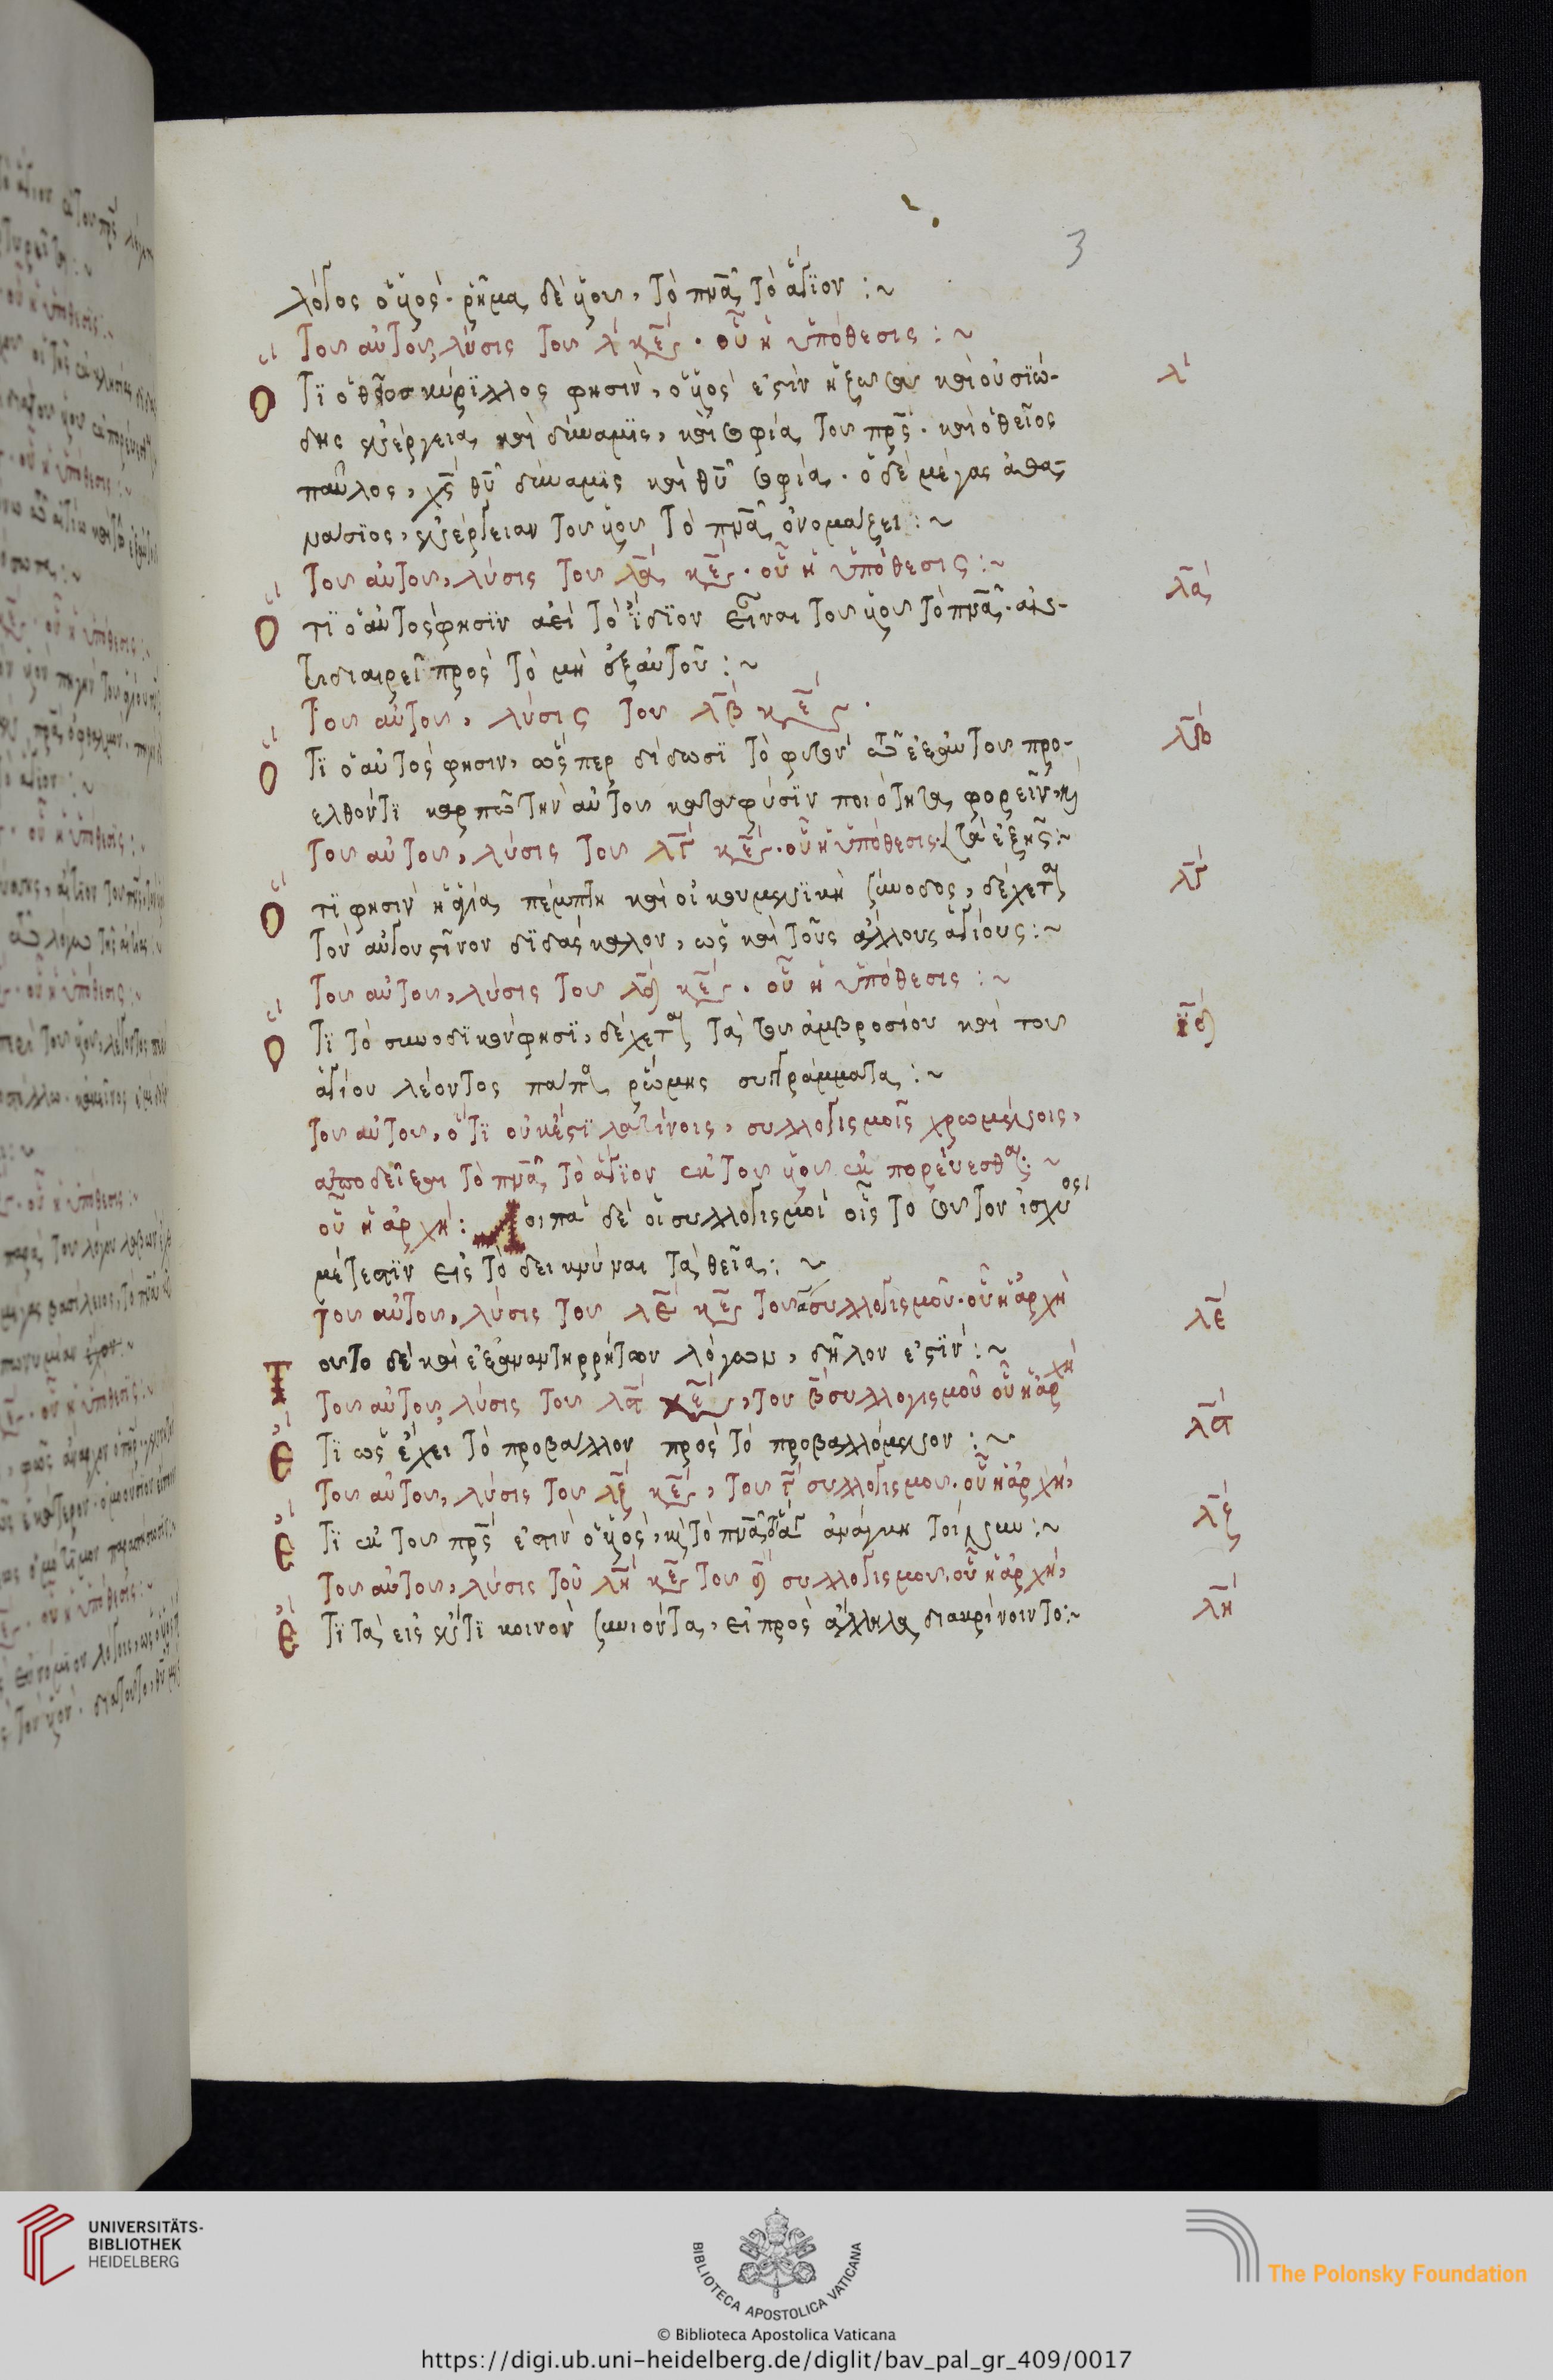 3
λόγος ὁ υἱός· ῥῆμα δὲ υἱοῦ, τὸ πνᾶ τὸ ἅγϊον :~
Τοῦ αὐτοῦ λύσις τοῦ λ κε · οὗ ἡ ὑπόθεσις :~
λ
Ὅτϊ ὁ θεῖος κύρϊλλος φησὶν, ὁ υἱός ἐστὶν ἡ ζῶσα καὶ οὐσϊώ-
δης ἐνέργεια καὶ δύναμϊς, καὶ σοφία τοῦ πρς · καὶ ὁ θεῖος
παῦλος, χς θῦ δύναμϊς καὶ θῦ σοφία · ὁ δὲ μέγας ἀθα-
νάσϊος, ἐνέργειαν τοῦ υἱοῦ τὸ πνᾶ ὀνομάζει :~
Τοῦ αὐτοῦ, λύσις τοῦ λα κε · οὗ ἡ ὑπόθεσις :~
λα
Ὅτϊ ὁ αὐτὸς φησὶν ἀεὶ τὸ ἴδϊον εἶναι τοῦ υἱοῦ τὸ πνᾶ·
διαιρεῖ πρὸς τὸ μὴ ἐξ αὐτοῦ :~
Τοῦ αὐτοῦ, λύσις τοῦ λβ κε ·
λβ
Ὅτϊ ὁ αὐτὸς φησὶν, ὥσπερ δίδωσϊ τὸ φυτὸν τῶ ἐξ αὐτοῦ προ-
ελθόντϊ καρπῶ τὴν αὐτοῦ κατὰ φύσϊν ποιότητα φορεῖν, κ
τὰ ἑξῆς :~
Τοῦ αὐτοῦ, λύσις τοῦ λγ κε · οὗ ἡ ὑπόθεσις·
λγ
Ὅτϊ φησὶν ἡ ἁγία πέμπτη καὶ οἰκουμενϊκὴ σύνοδος, δέχεται
τὸν αὐγουστῖνον δϊδάσκαλον, ὡς καὶ τοὺς ἄλλους ἁγίους :~
Τοῦ αὐτοῦ, λύσις τοῦ λδ κε · οὗ ἡ ὑπόθεσις :~
Ὅτϊ τὸ συνοδϊκόν φησϊ, δέχεται τὰ τοῦ ἀμβροσίου καὶ τοῦ
ἁγίου λέοντος πάπα ῥώμης συγγράμματα :~
Τοῦ αὐτοῦ, ὅτϊ οὐκ ἔστϊ λατίνοις, συλλογισμοῖς χρωμένοις,
ἀποδεῖξαι τὸ πνᾶ τὸ ἅγϊον ἐκ τοῦ υἱοῦ ἐκπορεύεσθαι :~
οὗ ἡ ἀρχή : Λοιπὰ δὲ οἱ συλλογισμοὶ οἷς τοσοῦτον ἰσχύος
μέτεστϊν εἰς τὸ δεικνύναι τὰ θεῖα :~
Τοῦ αὐτοῦ, λύσις τοῦ λε κε τοῦ α συλλογισμοῦ· οὗ ἡ ἀρχὴ
λε
Τοῦτο δὲ καὶ ἐξ ἀναντιρρήτων λόγων, δῆλον ἐστϊν :~
Τοῦ αὐτοῦ, λύσις τοῦ λϛ κε, τοῦ β συλλογισμοῦ οὗ ἡ ἀρχή
λϛ
Ἔτϊ ὡς ἔχει τὸ προβάλλον πρὸς τὸ προβαλλόμενον :~
Τοῦ αὐτοῦ, λύσις τοῦ λζ κε, τοῦ γ συλλογισμοῦ· οὗ ἡ ἀρχή,
λζ
Ἔτϊ ἐκ τοῦ πρς ἐστὶν ὁ υἱός, κ τὸ πνᾶ ἀνάγκη τοίνυν :~
Τοῦ αὐτοῦ, λύσις τοῦ λη κε τοῦ δ συλλογισμοῦ· οὗ ἡ ἀρχή,
λη
Ἔτϊ τὰ εἰς ἕν τϊ κοινὸν συνιόντα, εἰ πρὸς ἄλληλα διακρίνοιντο :~
UNIVERSITÄTS-
BIBLIOTHEK
HEIDELBERG
BIBLIOTECA APOSTOLICA VATICANA
The Polonsky Foundation
© Biblioteca Apostolica Vaticana
https://digi.ub.uni-heidelberg.de/diglit/bav_pal_gr_409/0017